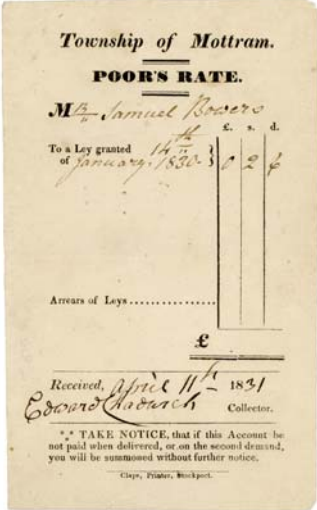 Township of Mottram.
POOR'S RATE.
Mr Samuel Bowers
£. s. d.
To a Ley granted 14th
of January. 1830. } 0 2 6
Arrears of Leys...............
£
Received, April 11th 1831
Edward Chadwick Collector.
*** TAKE NOTICE, that if this Account be
not paid when delivered, or on the second demand,
you will be summoned without further notice.
Claye, Printer, Stockport.